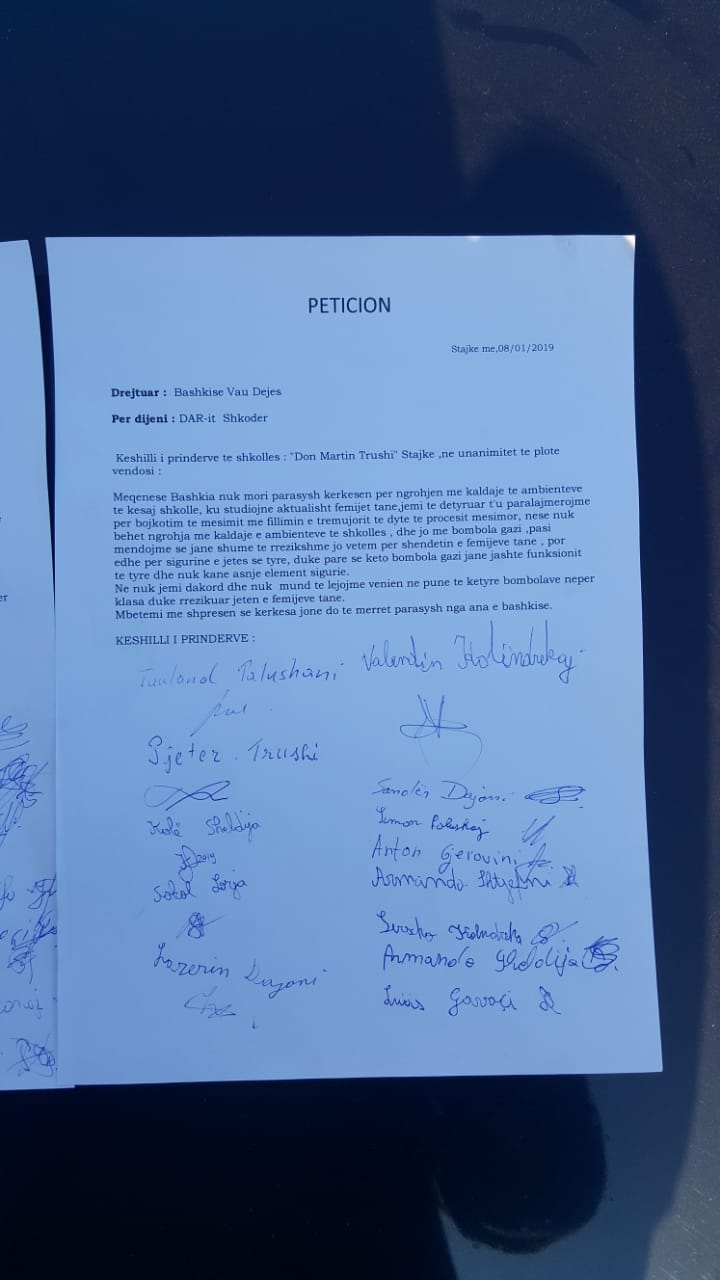 PETICION
Stajke me,08/01/2019
Drejtuar : Bashkise Vau Dejes
Per dijeni : DAR-it Shkoder
Keshilli i prinderve te shkolles : "Don Martin Trushi" Stajke ,ne unanimitet te plote
vendosi :
Meqenese Bashkia nuk mori parasysh kerkesen per ngrohjen me kaldaje te ambienteve
te kesaj shkolle, ku studiojne aktualisht femijet tane,jemi te detyruar t'u paralajmerojme
per bojkotim te mesimit me fillimin e tremujorit te dyte te procesit mesimor, nese nuk
behet ngrohja me kaldaje e ambienteve te shkolles , dhe jo me bombola gazi ,pasi
mendojme se jane shume te rrezikshme jo vetem per shendetin e femijeve tane , por
edhe per sigurine e jetes se tyre, duke pare se keto bombola gazi jane jashte funksionit
te tyre dhe nuk kane asnje element sigurie.
Ne nuk jemi dakord dhe nuk mund te lejojme venien ne pune te ketyre bombolave neper
klasa duke rrezikuar jeten e femijeve tane.
Mbetemi me shpresen se kerkesa jone do te merret parasysh nga ana e bashkise.
KESHILLI I PRINDERVE :
Palushani Valentin
Pjeter Trushi
Kolë Sheldija
Simon
2019
Anton Gjerovini
Sokol
Armando
Lazerin
Armando
Gavoçi